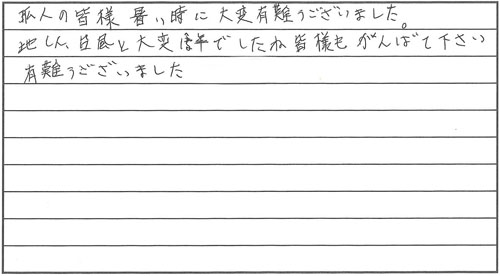 私人の皆様 暑い時に 大変有難うございました。
地しん、台風と大変な年でしたね 皆様も がんばて下さい
有難うございました